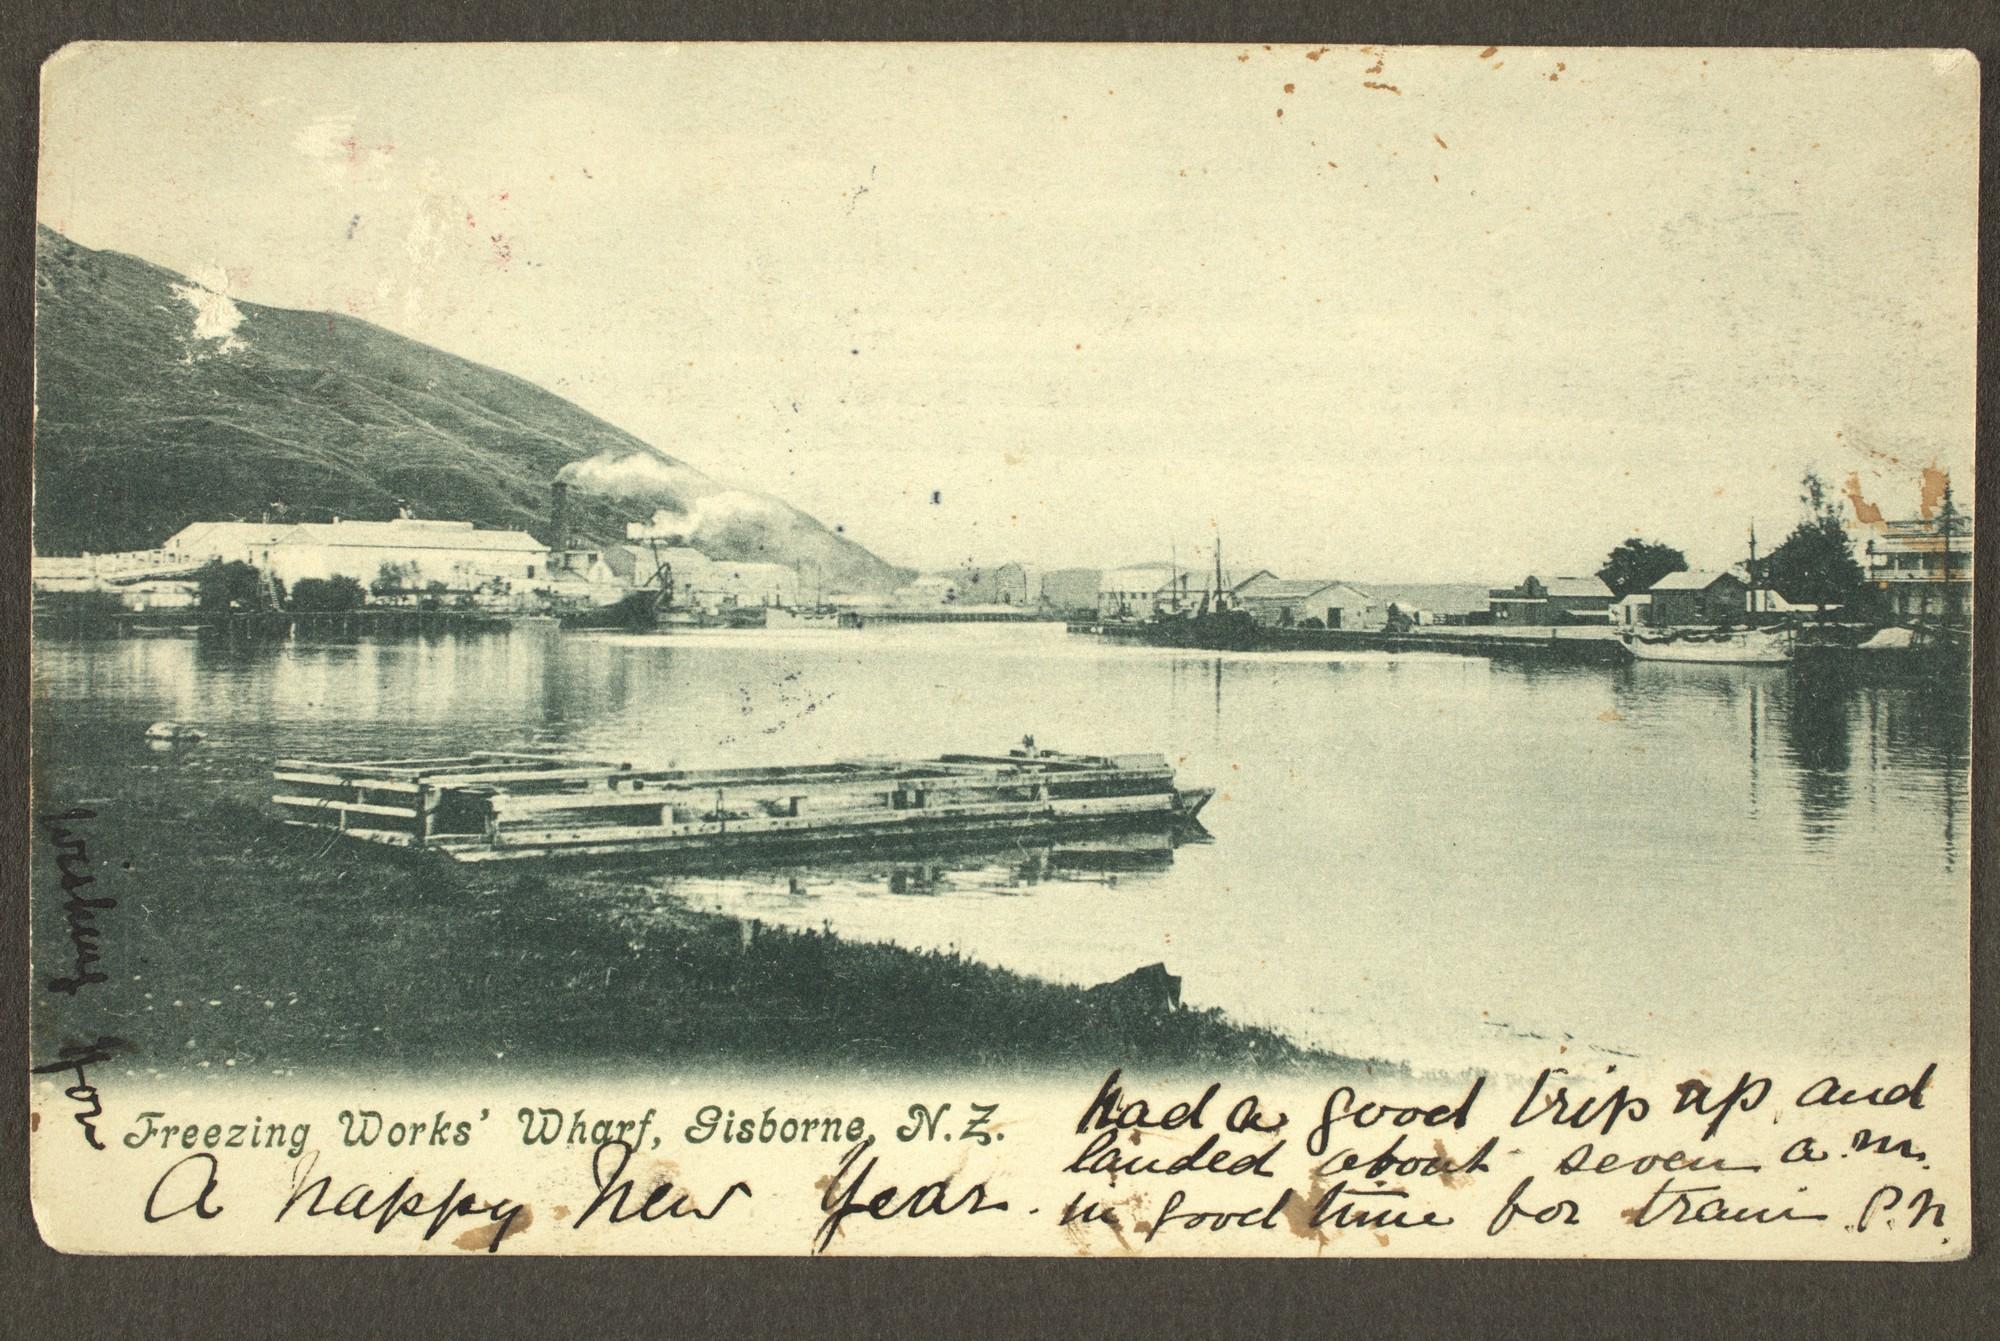 wishing you
Freezing Works' Wharf, Gisborne, N.Z.
A happy New Year.
had a good trip up and
landed about seven a.m.
in good time for train P.N.